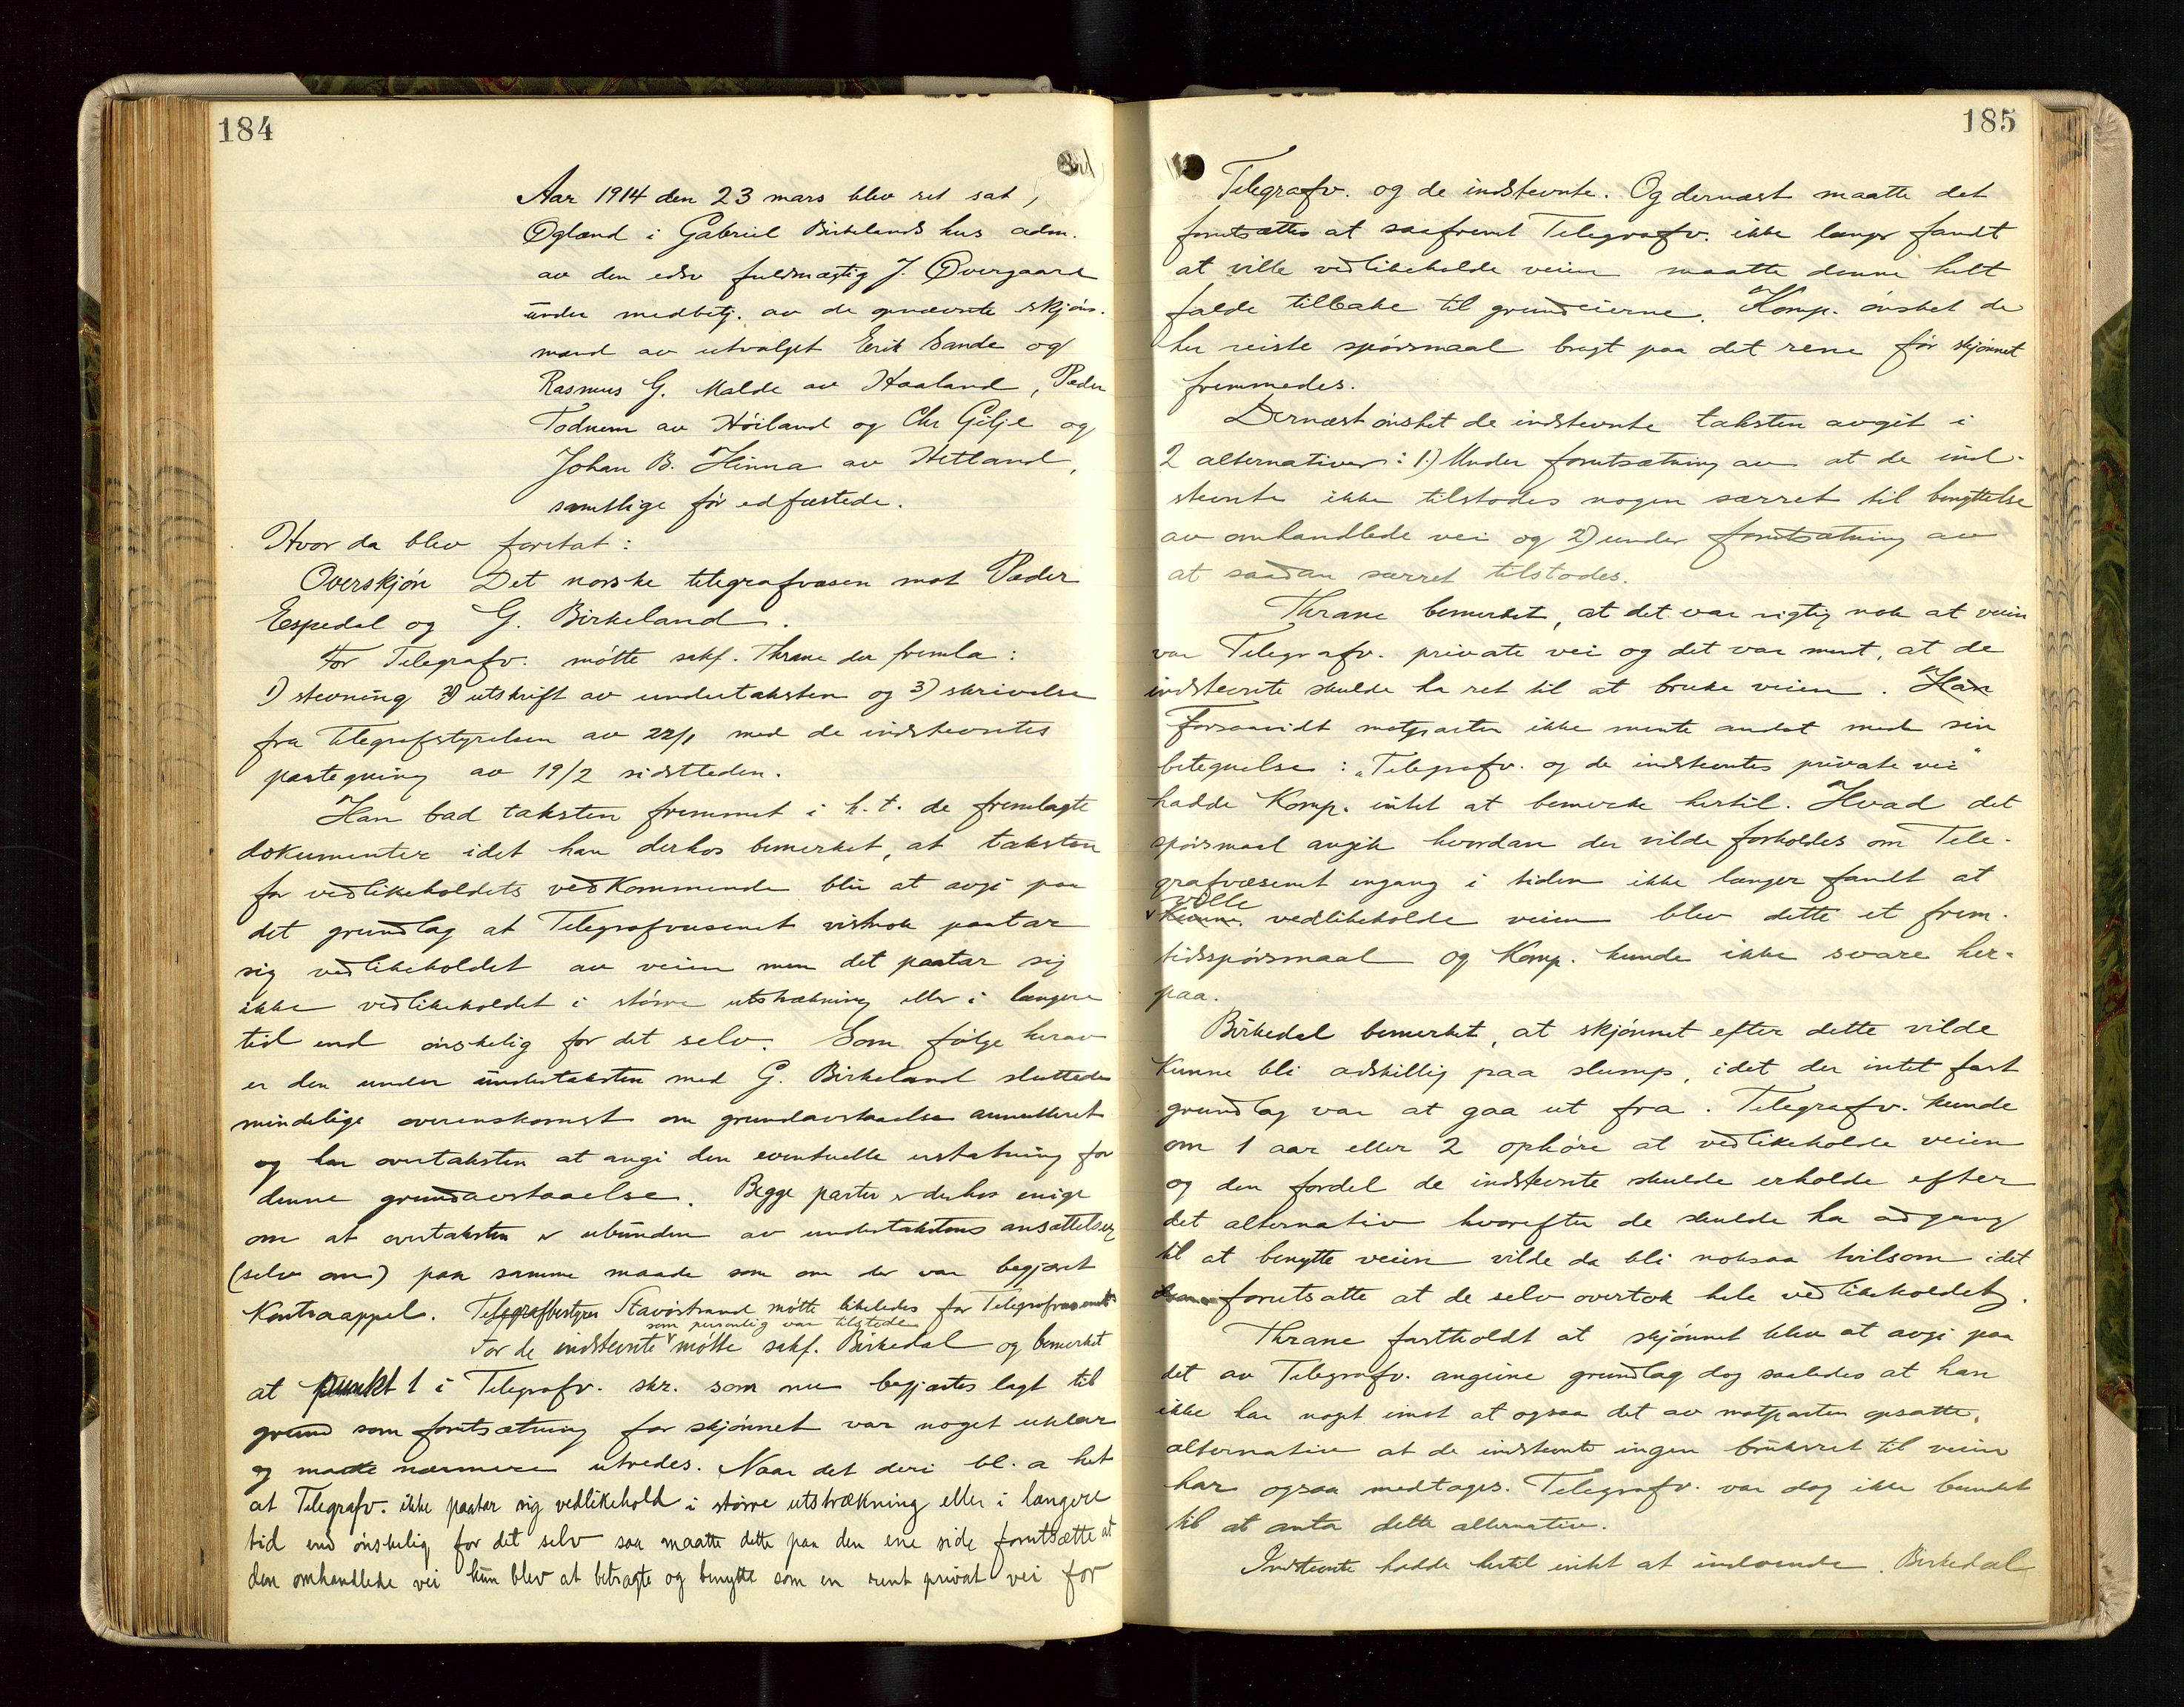 184
Aar 1914 den 23 mars blev ret sat,
Øgland i Gabriel Birkelands hus adm.
av den edsv fuldmægtig J. Øvergaard
under medbetj. av de opnævnte skjøns-
mænd av utvalget Erik Sande og
Rasmus G. Malde av Haaland, Peder
Todnem av Høiland og Chr Gilje og
Johan B. Hinna av Hetland,
samtlige før edfæstede.
Hvor da blev foretat:
Overskjøn Det norske telegrafvæsen mot Peder
Espedal og G. Birkeland.
For Telegrafv. møtte sakf. Thrane der fremla:
1) stevning 2) utskrift av undertaksten og 3) skrivelse
fra Telegrafstyrelsen av 22/1 med de indstevntes
paategning av 19/2 sidstleden.
Han bad taksten fremmet i h.t. de fremlagte
dokumenter idet han derhos bemerket, at taksten
for vedlikeholdets vedkommende blir at avgi paa
det grundlag at Telegrafvæsenet vistnok paatar
sig vedlikeholdet av veien men det paatar sig
ikke vedlikeholdet i større utstrækning eller i længere
tid end ønskelig for det selv. Som følge herav
er den under undertaksten med G. Birkeland sluttede
mindelige overenskomst om grundavstaaelse annulleret
og har overtaksten at angi den eventuelle erstatning for
denne grundavstaaelse. Begge parter er derhos enige
om at overtaksten er ubunden av undertakstens ansættelser
(selv om) paa samme maade som om der var begjæret
Kontraappel. Telegrafbestyrer Stavøstrand møtte likeledes for Telegrafvæsenet
som personlig var tilstede
For de indstevnte møtte sakf. Birkedal og bemerket
at punkt 1 i Telegrafv. skr. som nu begjæres lagt til
grund som forutsætning for skjønnet var noget uklar
og maatte nærmere utredes. Naar det deri bl. a het
at Telegrafv. ikke paatar sig vedlikehold i større utstrækning eller i længere
tid end ønskelig for det selv saa maatte dette paa den ene side forutsætte at
den omhandlede vei kun blev at betragte og benytte som en rent privat vei for
185
Telegrafv. og de indstevnte. Og dernæst maatte det
forutsættes at saafremt Telegrafv. ikke længer fandt
at ville vedlikeholde veien maatte denne helt
falde tilbake til grundeierne. Komp. ønsket de
her reiste spørsmaal bragt paa det rene før skjønnet
fremmedes.
Dernæst ønsket de indstevnte taksten avgit i
2 alternativer: 1.) Under forutsætning av at de ind-
stevnte ikke tilstodes nogen særret til benyttelse
av omhandlede vei og 2) under forutsætning av
at saadan særret tilstodes.
Thrane bemerket, at det var rigtig nok at veien
var Telegrafv. private vei og det var ment, at de
indstevnte skulde ha ret til at bruke veien. Han
Forsaavidt motparten ikke mente andet med sin
betegnelse: „Telegrafv. og de indstevntes private vei“
hadde Komp. intet at bemerke hertil. Hvad det
spørsmaal angik hvordan der vilde forholdes om Tele-
grafvæsenet engang i tiden ikke længer fandt at
ville
kunne vedlikeholde veien blev dette et frem-
tidsspørsmaal og Komp. kunde ikke svare her-
paa.
Birkedal bemerket, at skjønnet efter dette vilde
kunne bli adskillig paa slump, idet der intet fast
grundlag var at gaa ut fra. Telegrafv. kunde
om 1 aar eller 2 ophøre at vedlikeholde veien
og den fordel de indstevnte skulde erholde efter
det alternativ hvorefter de skulde ha adgang
til at benytte veien vilde da bli noksaa tvilsom idet
forutsatte at de selv overtok hele vedlikeholdet.
Thrane fastholdt at skjønnet blev at avgi paa
det av Telegrafv. angivne grundlag dog saaledes at han
ikke har noget imot at ogsaa det av motparten opsatte
alternativ at de indstevnte ingen bruksret til veien
har ogsaa medtages. Telegrafv. var dog ikke bundet
til at anta dette alternativ.
Indstevnte hadde hertil intet at indvende. Birkedal